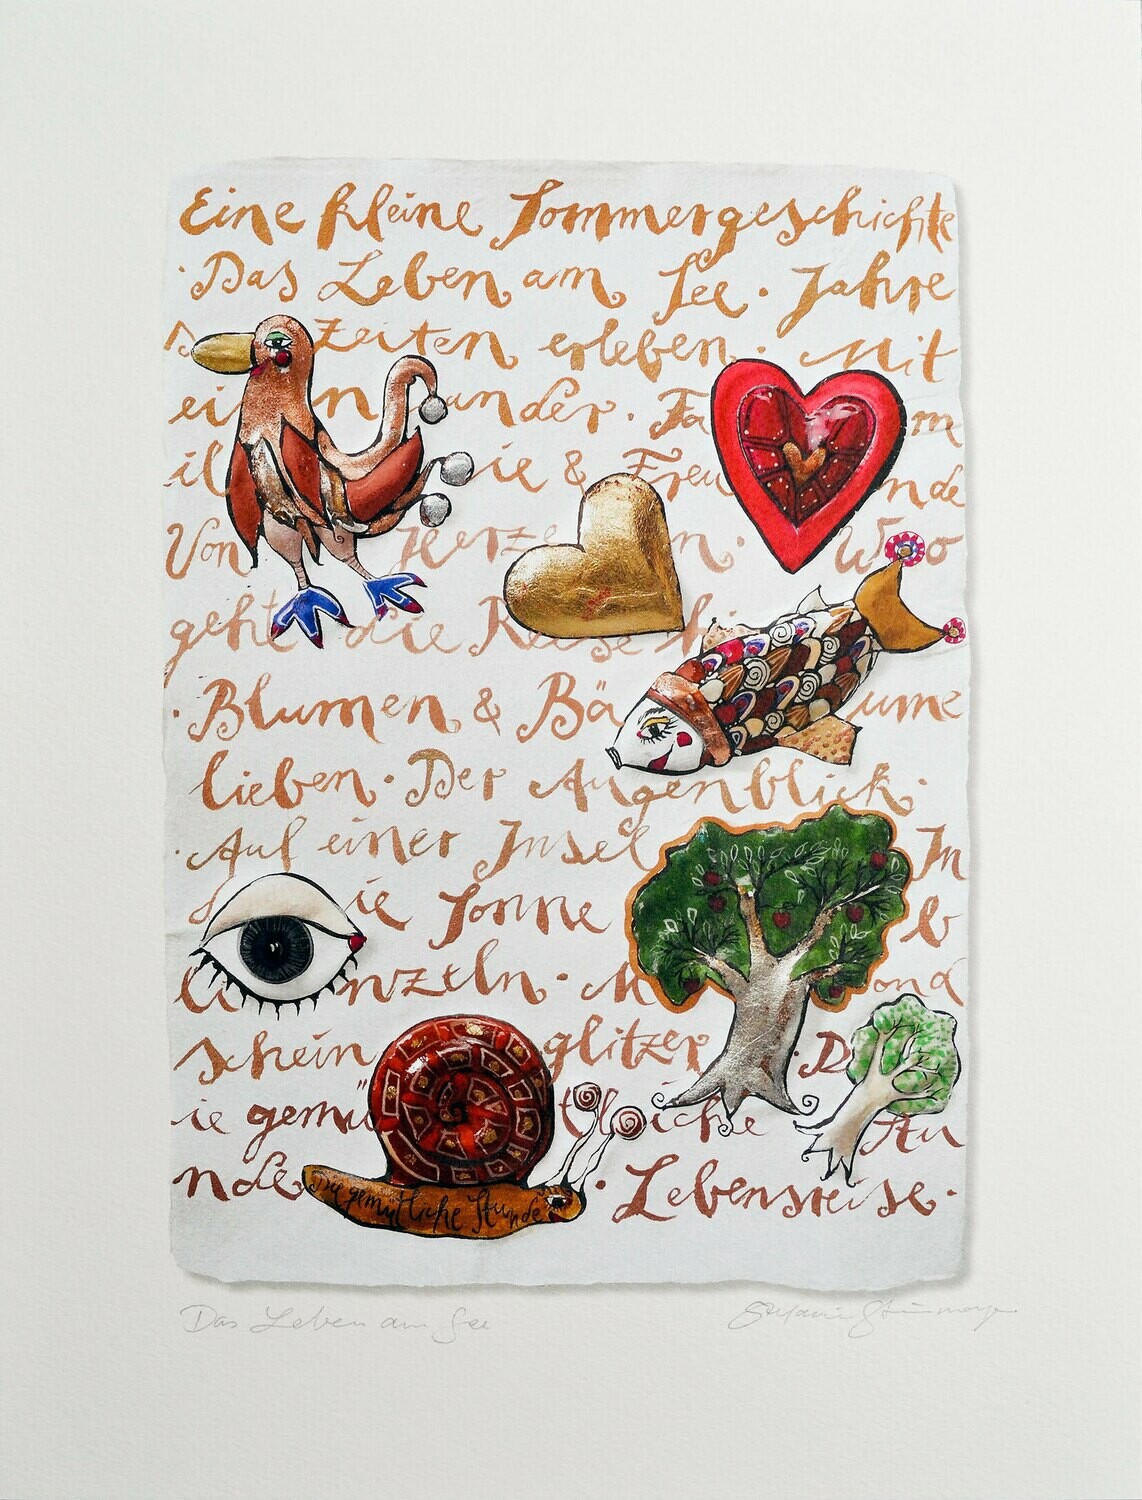 Eine kleine Sommergeschichte
· Das Leben am See · Jahre
s zeiten erleben · Mit
ein ander · Fa m
il ie & Freu nde
Von Herze n · Wo
geht die Reise hi
· Blumen & Bä ume
lieben · Der Augenblick ·
· Auf einer Insel In
d ie Sonne b
li nzeln · M ond
schein glitzer · D
ie gemü tliche Stu
nde · Lebensreise ·
Die gemütliche Stunde
Das Leben am See
Stefanie Steinmayer